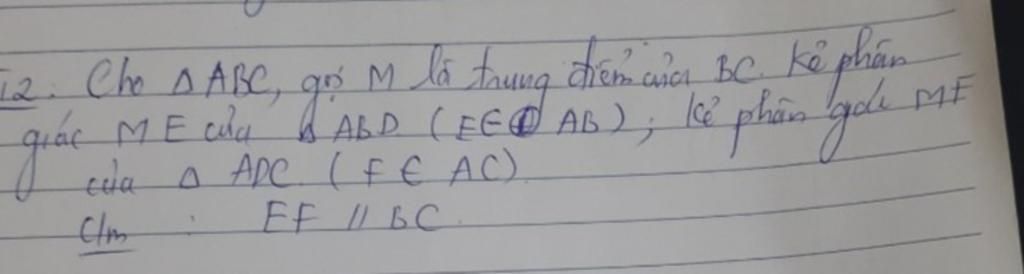 i2. Cho Δ ABC, gọi M là trung điểm của BC. Kẻ phân
giác ME của Δ ABD (E ∈ AB), kẻ phân giác MF
của Δ ADC (F ∈ AC)
C/m : EF // BC.